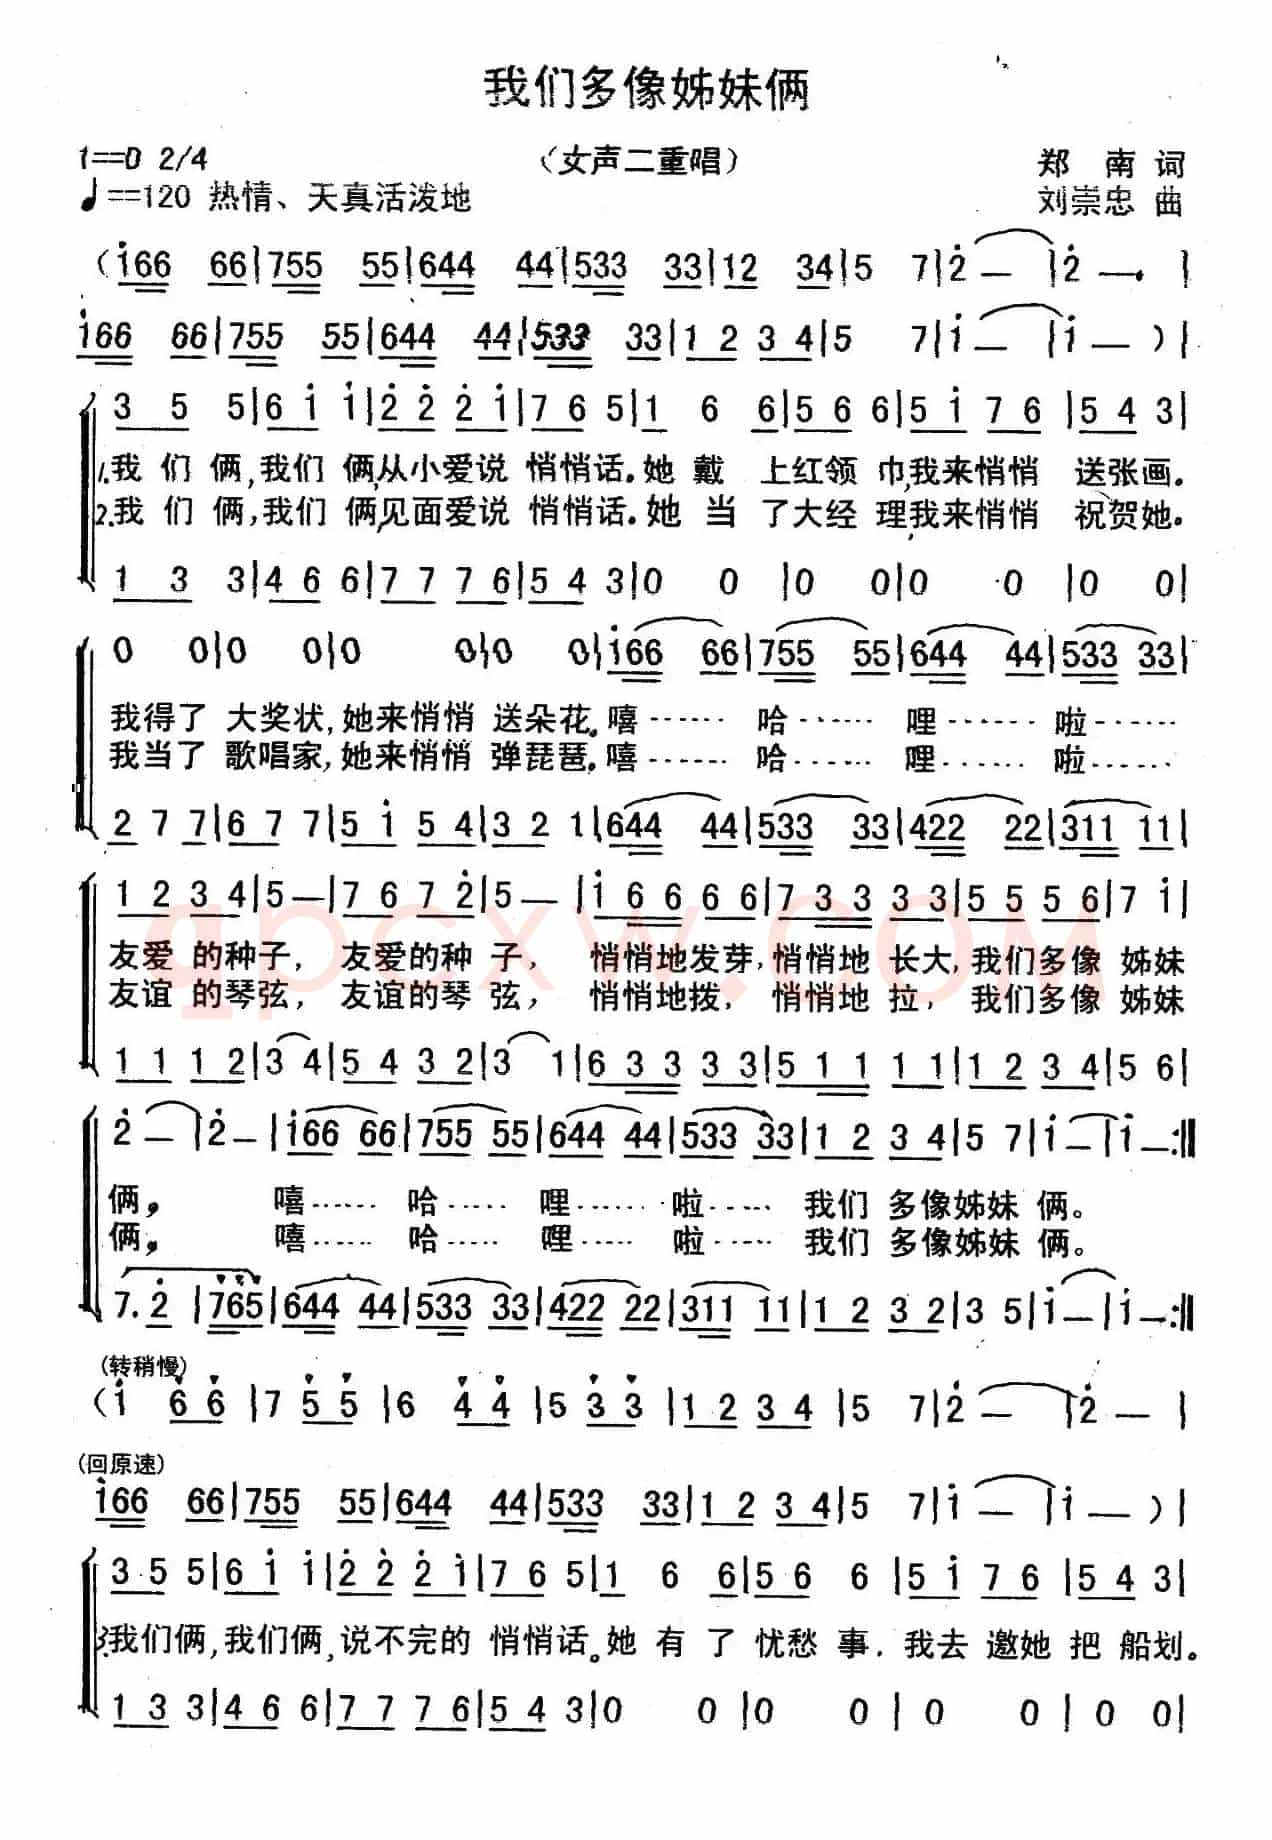 我们多像姊妹俩
1==D 2/4 （女声二重唱） 郑 南 词
♩==120 热情、天真活泼地 刘崇忠 曲
（i66 66|755 55|644 44|533 33|12 34|5 7|2 — |2 —. |
i66 66|755 55|644 44|533 33|1 2 3 4|5 7|i — |i — ）|
3 5 5|6 i i|2 2 2 i|7 6 5|1 6 6|5 6 6|5 i 7 6 |5 4 3|
1.我 们 俩,我们 俩,从小爱说 悄悄话.她 戴 上红领 巾,我来悄悄 送张画.
2.我 们 俩,我们 俩,见面爱说 悄悄话.她 当 了大经 理,我来悄悄 祝贺她.
1 3 3|4 6 6|7 7 7 6|5 4 3|0 0 |0 0|0 0 |0 0|
0 0|0 0|0 0|0 0|i66 66|755 55|644 44|533 33|
我得了 大奖状,她来悄悄 送朵花。嘻…… 哈…… 哩…… 啦……
我当了 歌唱家,她来悄悄 弹琵琶.嘻…… 哈…… 哩…… 啦……
2 7 7|6 7 7|5 i 5 4|3 2 1|644 44|533 33|422 22|311 11|
1 2 3 4|5—|7 6 7 2|5— |i 6 6 6 6|7 3 3 3 3|5 5 5 6|7 i|
友爱 的种子, 友爱的种 子, 悄悄地发芽,悄悄地 长大,我们多像 姊妹
友谊 的琴弦, 友谊的琴 弦, 悄悄地拨, 悄悄地 拉, 我们多像 姊妹
1 1 1 2|3 4|5 4 3 2|3 1|6 3 3 3 3|5 1 1 1 1|1 2 3 4|5 6|
2 — |2—|i66 66|755 55|644 44|533 33|1 2 3 4|5 7|i—|i—:‖
俩, 嘻…… 哈…… 哩…… 啦…… 我们 多像姊妹 俩。
俩, 嘻…… 哈…… 哩…… 啦…… 我们 多像姊妹 俩。
7. 2 |765|644 44|533 33|422 22|311 11|1 2 3 2|3 5|i—|i—:‖
(转稍慢)
（i 6 6 |7 5 5 |6 4 4 |5 3 3 |1 2 3 4 |5 7|2 — |2 — |
(回原速)
i66 66|755 55|644 44|533 33|1 2 3 4|5 7|i — |i — ）|
3 5 5|6 i i|2 2 2 i|7 6 5|1 6 6|5 6 6 |5 i 7 6 |5 4 3|
3.我们俩,我们俩,说不完的 悄悄话。她 有 了 忧愁 事. 我去 邀她 把 船划。
1 3 3|4 6 6|7 7 7 6|5 4 3|0 0 |0 0 |0 0 |0 0|
qpcxw.com